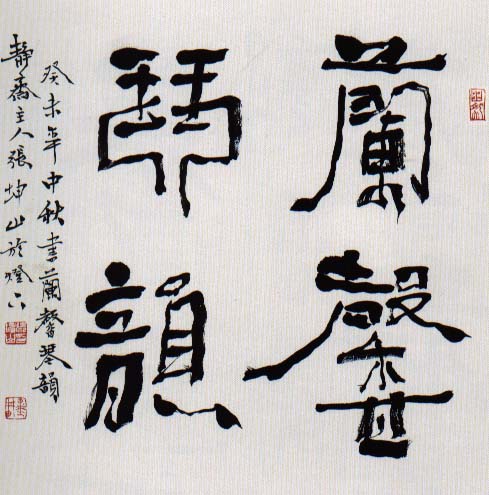 蘭馨
琴韻
癸未年中秋書蘭馨琴韻
靜齋主人張坤山於燈下